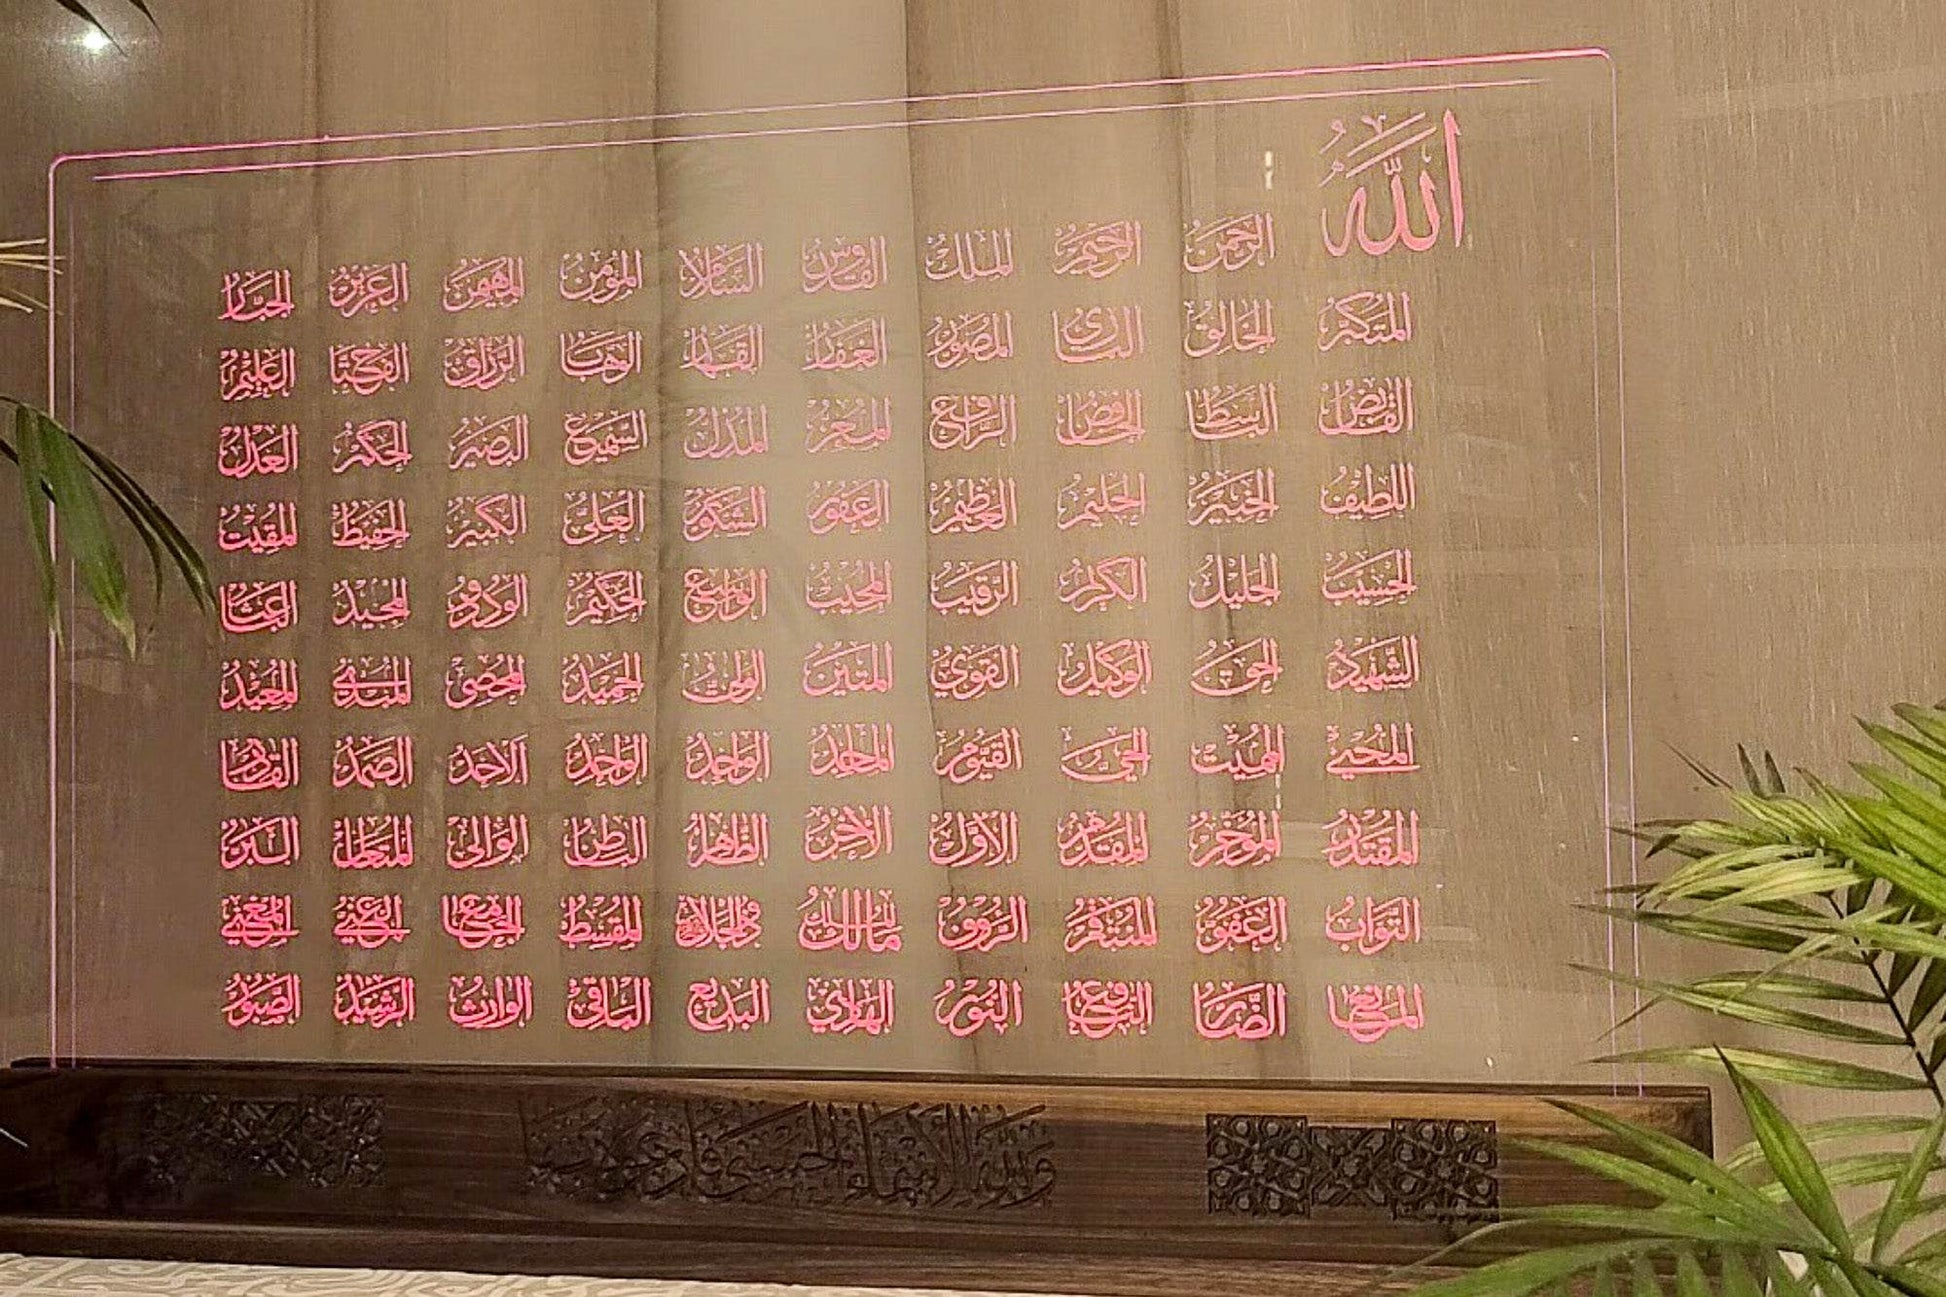 الله الرحمن الرحيم الملك القدوس السلام المؤمن المهيمن العزيز الجبار
المتكبر الخالق البارئ المصور الغفار القهار الوهاب الرزاق الفتاح العليم
القابض الباسط الخافض الرافع المعز المذل السميع البصير الحكم العدل
اللطيف الخبير الحليم العظيم الغفور الشكور العلي الكبير الحفيظ المقيت
الحسيب الجليل الكريم الرقيب المجيب الواسع الحكيم الودود المجيد الباعث
الشهيد الحق الوكيل القوي المتين الولي الحميد المحصي المبدئ المعيد
المحيي المميت الحي القيوم الماجد الواجد الواحد الأحد الصمد القادر
المقتدر المؤخر المقدم الأول الآخر الظاهر الباطن الوالي المتعال البر
التواب العفو المنتقم الرؤف مالك الملك ذو الجلال والإكرام المقسط الجامع الغني المغني
المانع الضار النافع النور الهادي البديع الباقي الوارث الرشيد الصبور
ولله الأسماء الحسنى فادعوه بها